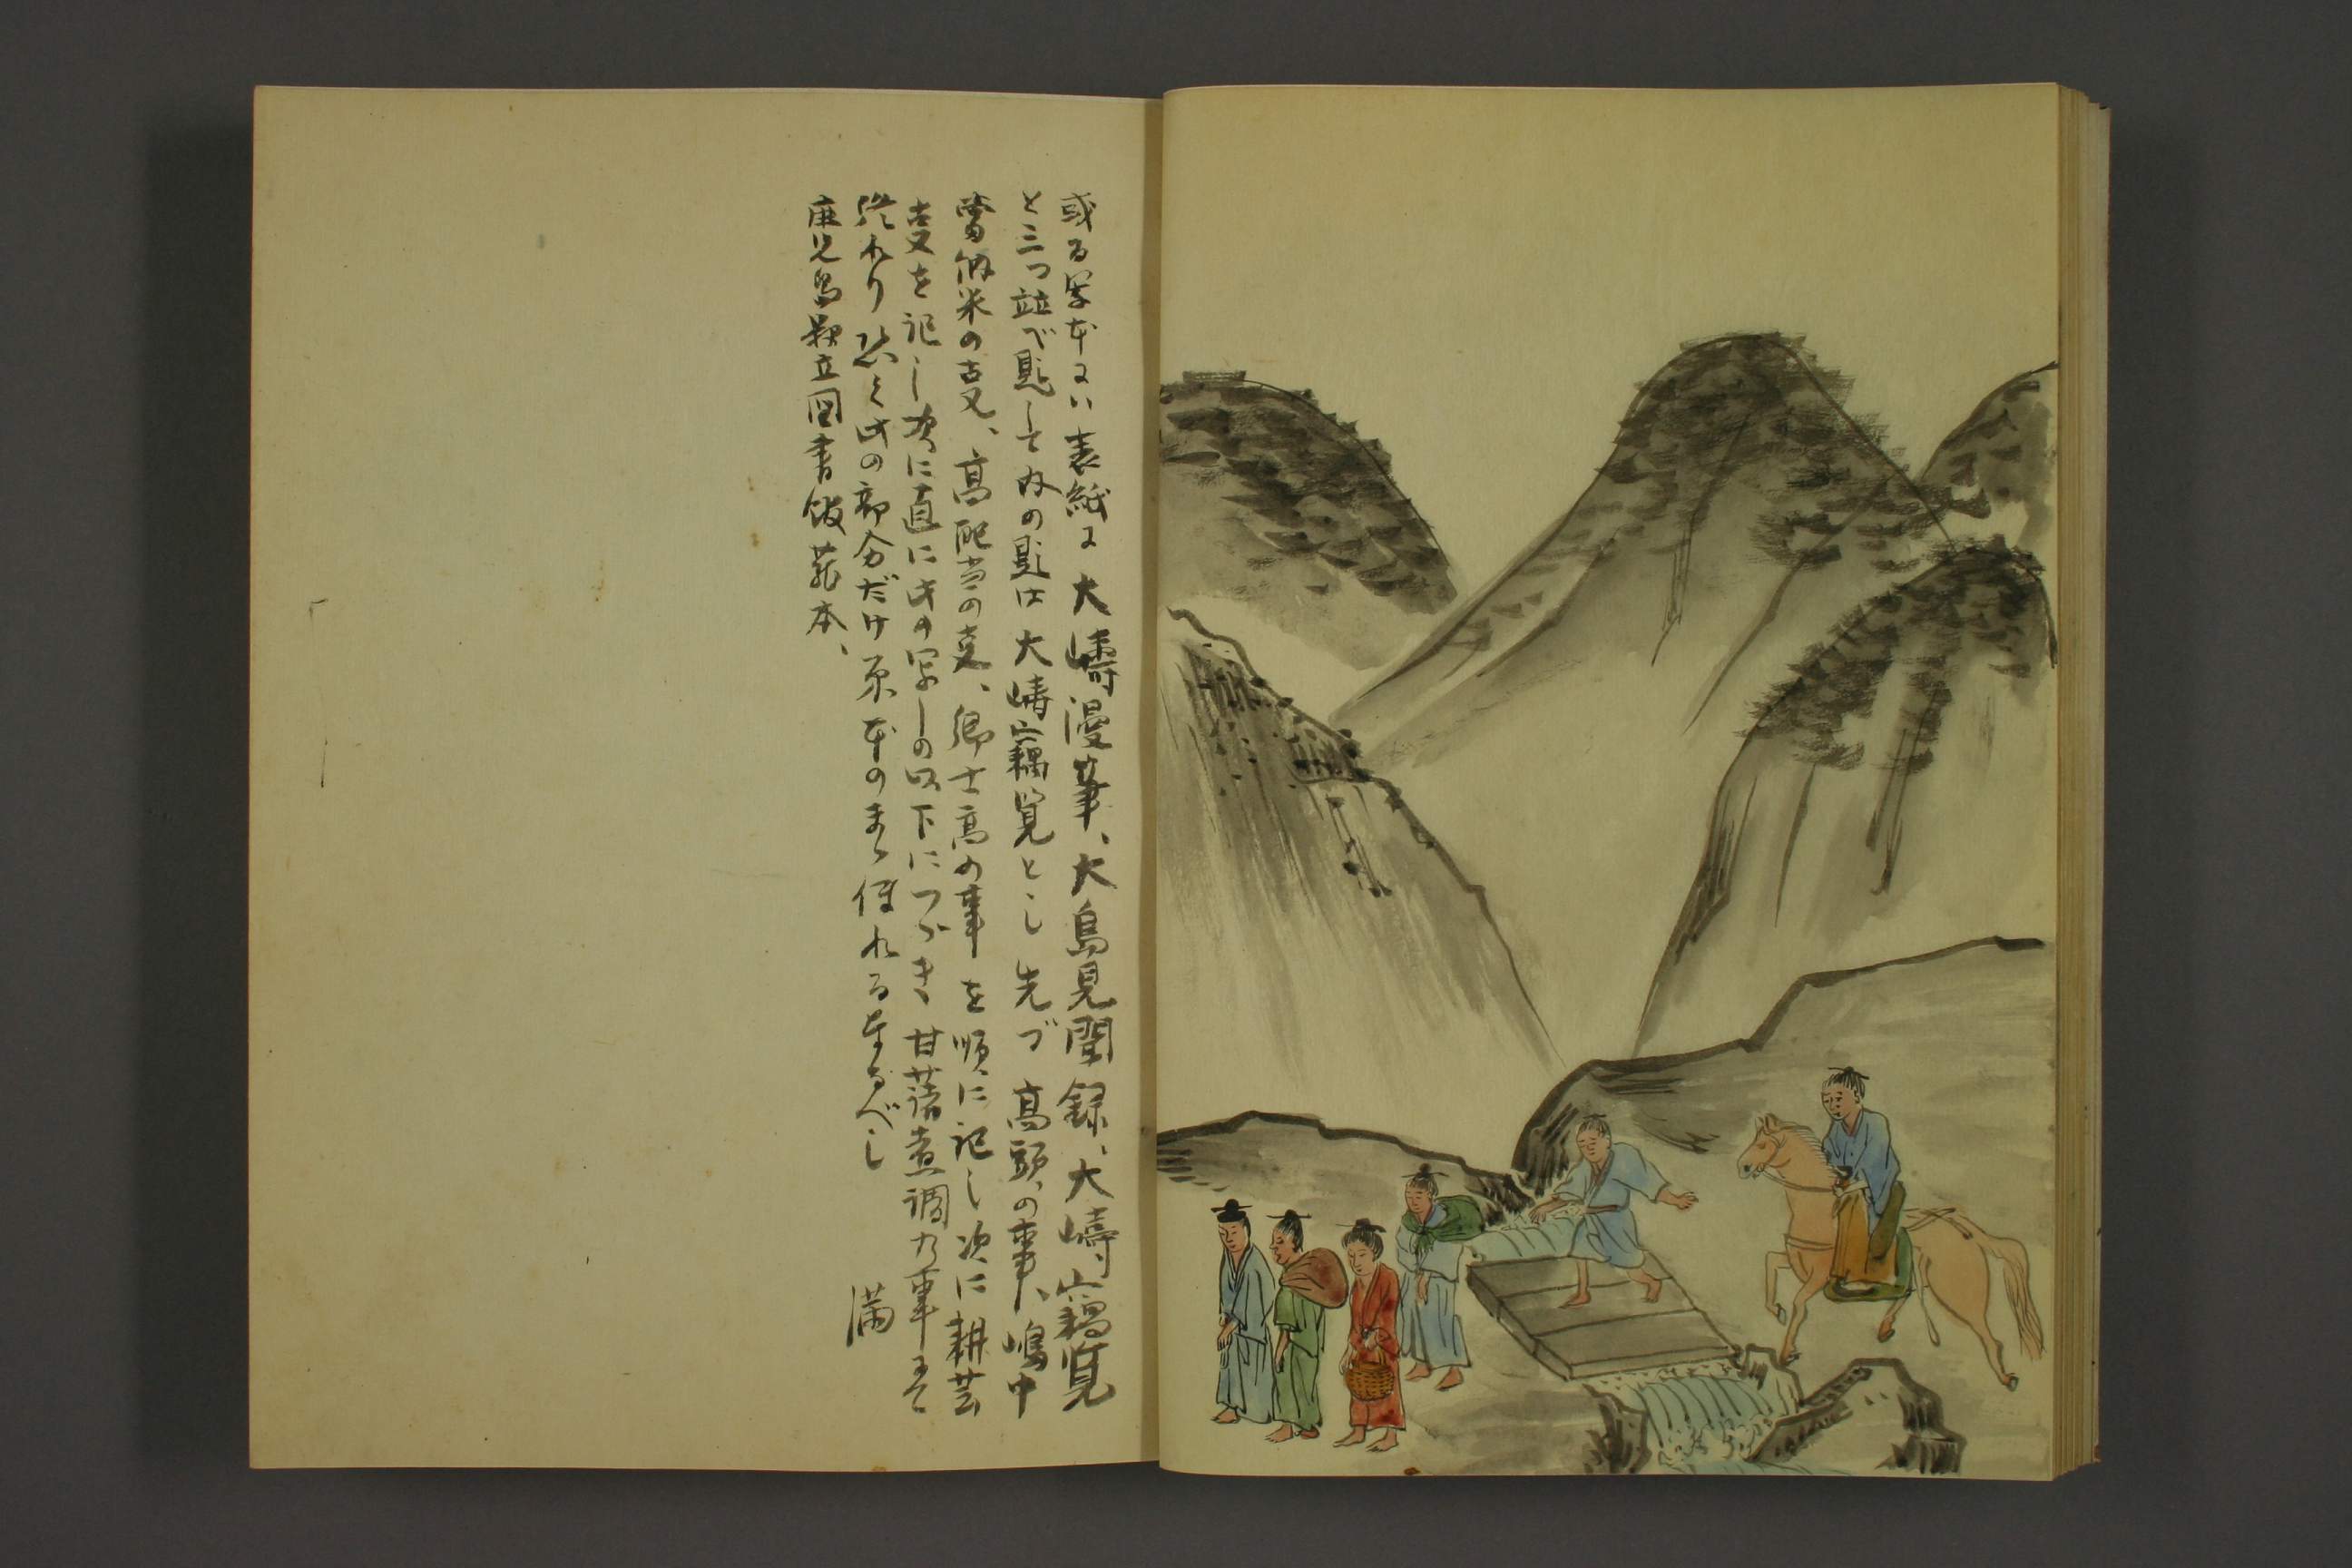 或る写本には表紙に大嶹漫筆、大島見聞録、大嶹竊覧
と三つ竝べ題して内の題は大嶹竊覧とし先づ高頭の事、嶋中
納米の叓、高配当の叓、郷士高の事を順に記し次に耕芸
叓を記し次に直に此の写しの以下につづき甘藷煮調乃事まで
終れり恐く此の部分だけ原本のまゝ伝れるなるべし 満
鹿児島縣立図書館蔵本、